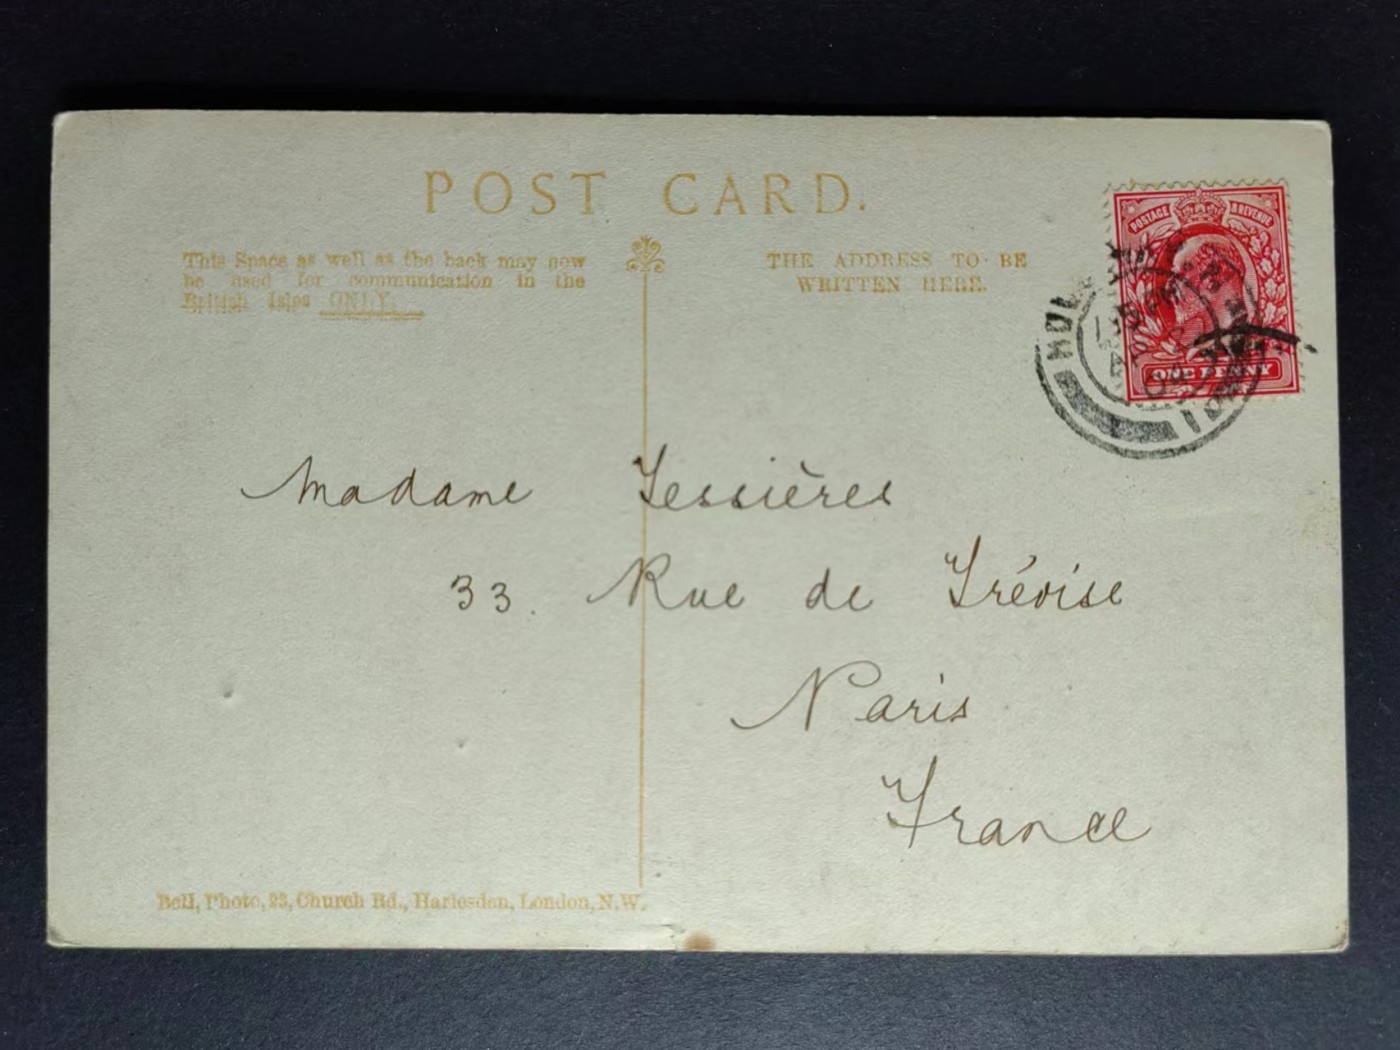 POST CARD.
This Space as well as the back may now
be used for communication in the
British Isles ONLY.
THE ADDRESS TO BE
WRITTEN HERE.
POSTAGE & REVENUE
ONE PENNY
Madame Tessières
33. Rue de Trévise
Paris
France
Bell, Photo, 23, Church Rd., Harlesden, London, N.W.